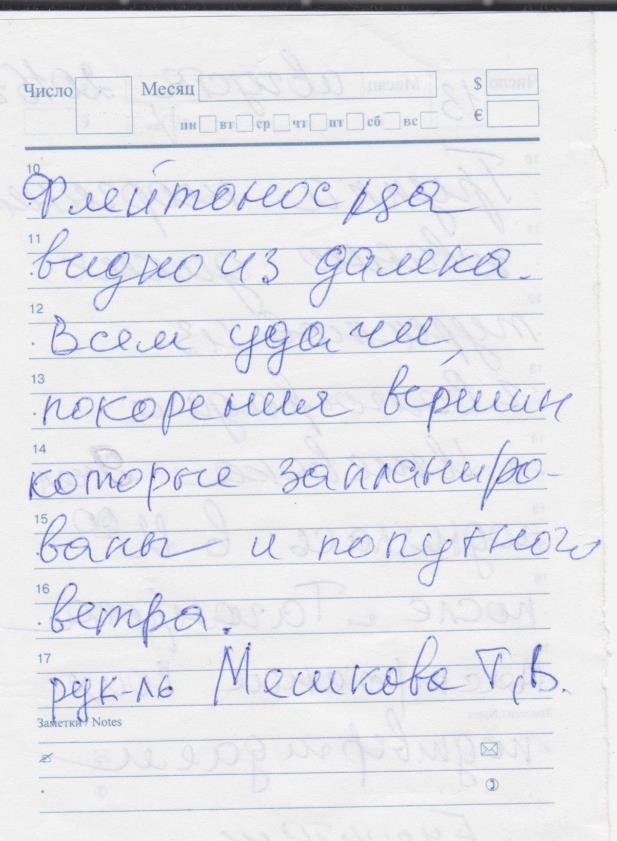 Число Месяц $
€
пн вт ср чт пт сб вс
10
Флейтоносца
11
видно из далека.
12
Всем удачи,
13
покорения вершин
14
которые запланиро-
15
ваны и попутного
16
ветра.
17
рук-ль Мешкова Т,В.
Заметки / Notes